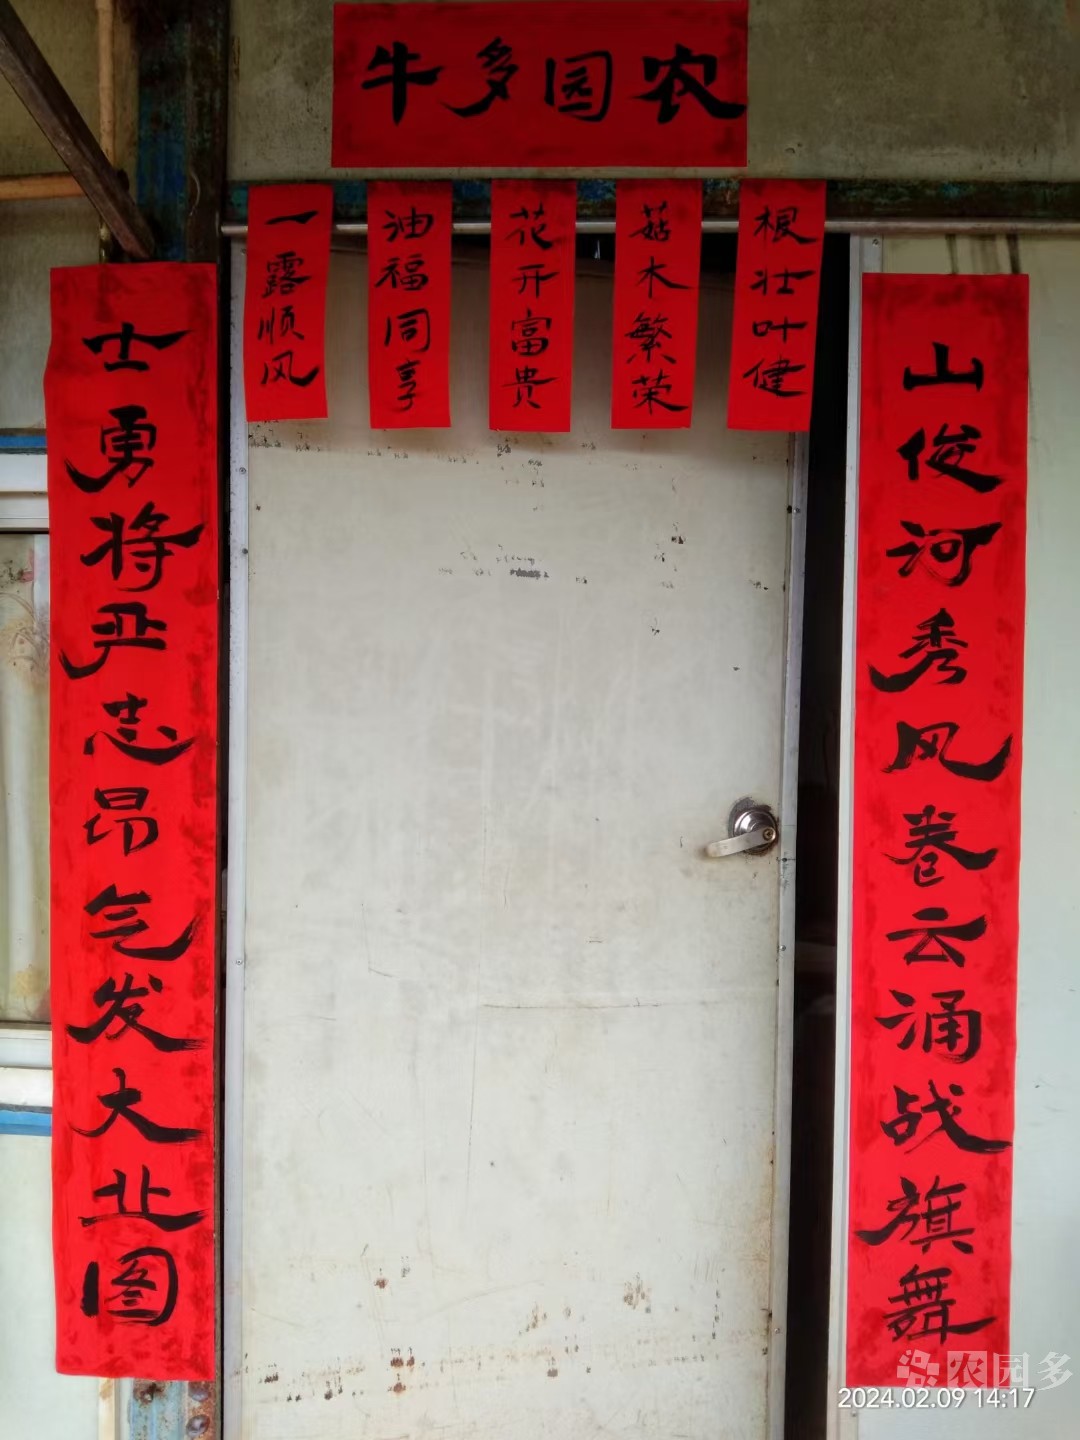 农园多牛
根壮叶健
菇木繁荣
花开富贵
油福同享
一露顺风
山俊河秀风卷云涌战旗舞
士勇将严志昂气发大业图
农园多
2024.02.09 14:17